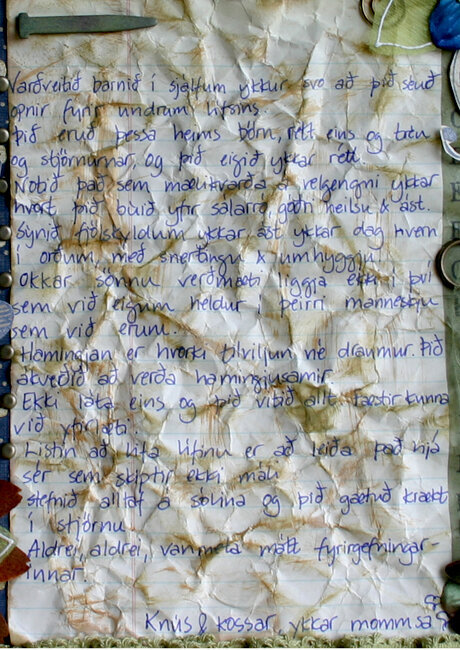 Varðveitið barnið í sjálfum ykkur svo að þið séuð
opnir fyrir undrum lífsins.
Þið eruð þessa heims börn, rétt eins og trén
og stjörnurnar, og þið eigið ykkar rétt.
Notið það sem mælikvarða á velgengni ykkar
hvort þið búið yfir sálarró, góðri heilsu & ást.
Sýnið fjölskyldum ykkar ást ykkar dag hvern
í orðum, með snertingu & umhyggju.
Okkar sönnu verðmæti liggja ekki í því
sem við eigum heldur í þeirri manneskju
sem við erum.
Hamingjan er hvorki tilviljun né draumur. Þið
ákveðið að verða hamingjusamir.
Ekki láta eins og þið vitið allt fæstir kunna
við
Listin að lifa lífinu er að leiða það hjá
sér sem skiptir ekki máli
Stefnið alltaf á sólina og þið gætuð krækt
í stjörnu
Aldrei, aldrei, vanmeta mátt fyrirgefningar-
innar.
Knús & kossar, ykkar mamma